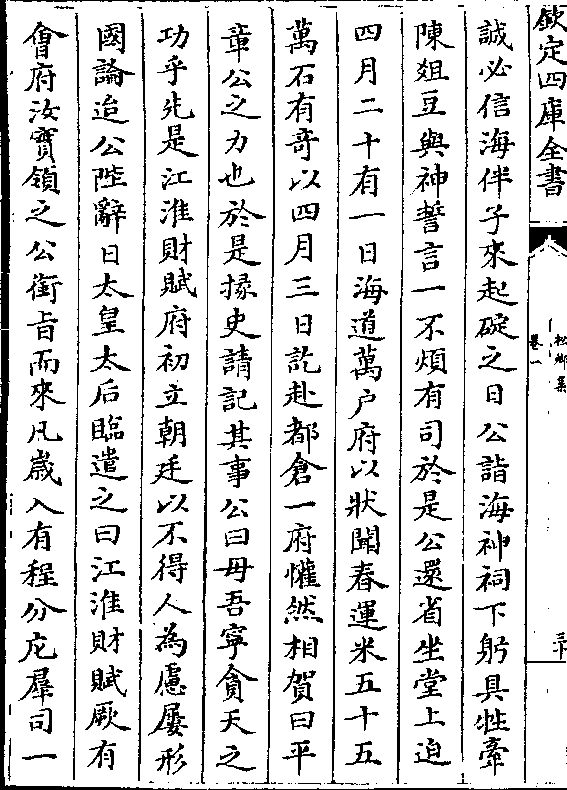 欽定四庫全書
松鄉集
卷一
三十
誠必信海伴子來起碇之日公詣海神祠下躬具牲牽
陳爼豆與神誓言一不煩有司於是公還省坐堂上迨
四月二十有一日海道萬户府以狀聞春運米五十五
萬石有奇以四月三日訖赴都倉一府懽然相賀曰平
章公之力也於是掾史請記其事公曰毋吾寧貪天之
功乎先是江淮財賦府初立朝廷以不得人為慮屢形
國論迨公陛辭日太皇太后臨遣之曰江淮財賦厥有
會府汝寶領之公銜㫖而來凡歳入有程分庀羣司一